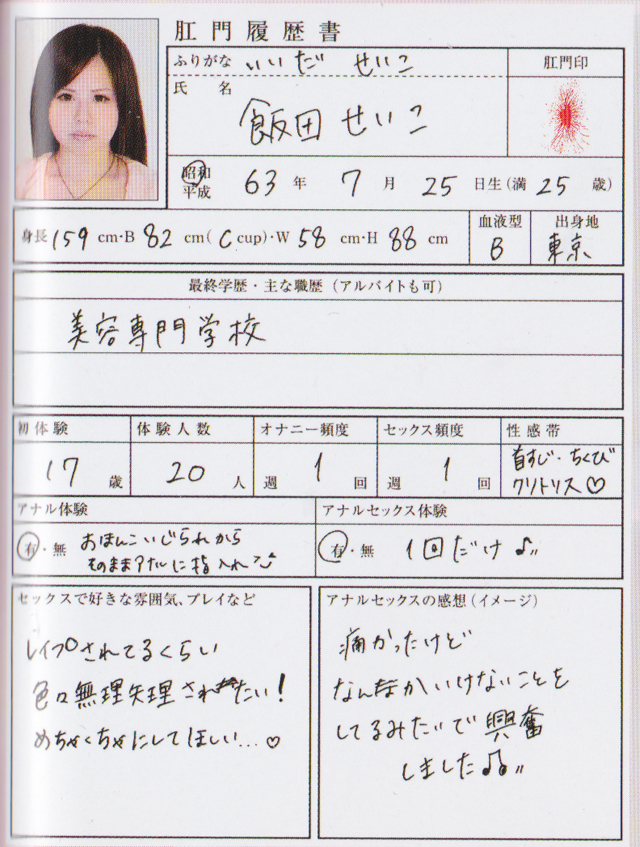 肛門履歴書
ふりがな いいだ せいこ
肛門印
氏名 飯田せいこ
昭和 平成 63年 7月 25日生(満 25歳)
身長 159 cm・B 82 cm( C cup)・W 58 cm・H 88 cm
血液型 B
出身地 東京
最終学歴・主な職歴(アルバイトも可)
美容専門学校
初体験 体験人数 オナニー頻度 セックス頻度 性感帯
17歳 20人 週 1回 週 1回 首すじ・ちくび
クリトリス♡
アナル体験
有・無 おまんこいじられから
そのままアナルに指入れ
アナルセックス体験
有・無 1回だけ♪
セックスで好きな雰囲気、プレイなど
レイプされてるくらい
色々無理矢理されたい!
めちゃくちゃにしてほしい…♡
アナルセックスの感想(イメージ)
痛かったけど
なんかいけないことを
してるみたいで興奮
しました♪